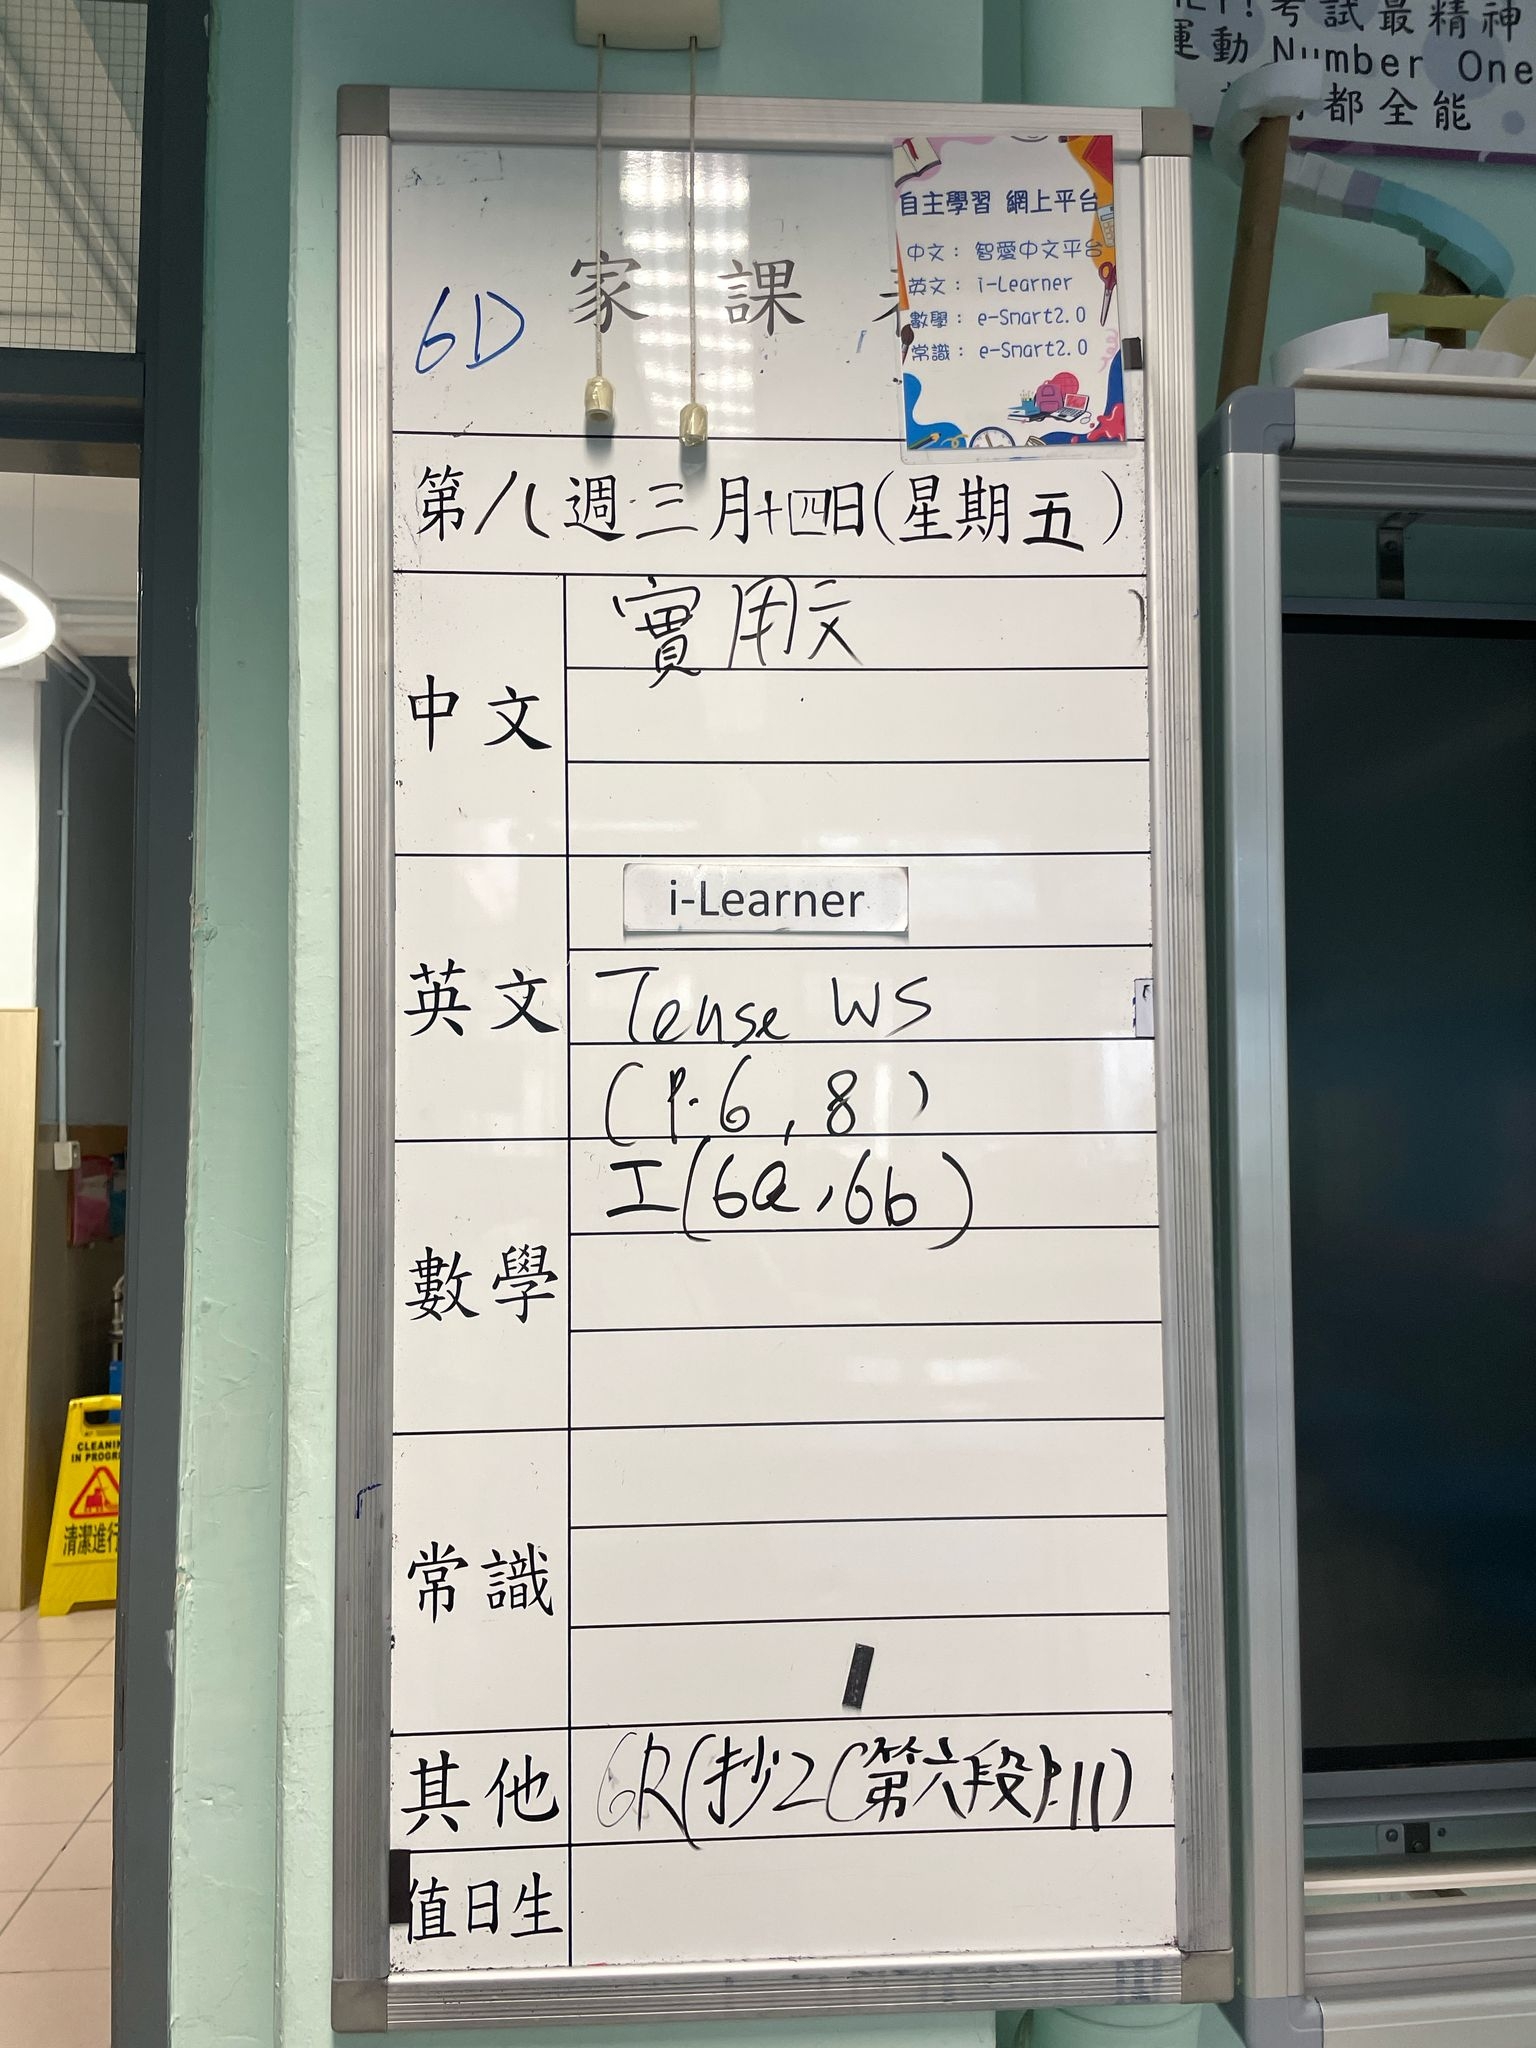 考試最精神
運動 Number One
都全能
家 課
6D
自主學習 網上平台
中文： 智愛中文平台
英文： i-Learner
數學： e-Smart2.0
常識： e-Smart2.0
第八週三月十四日(星期五)
中文
實用文
英文
i-Learner
Tense WS
(P.6, 8)
數學
工(6a,6b)
常識
其他
GR(抄2(第六段)
值日生
CLEANING
IN PROGR
清潔進行